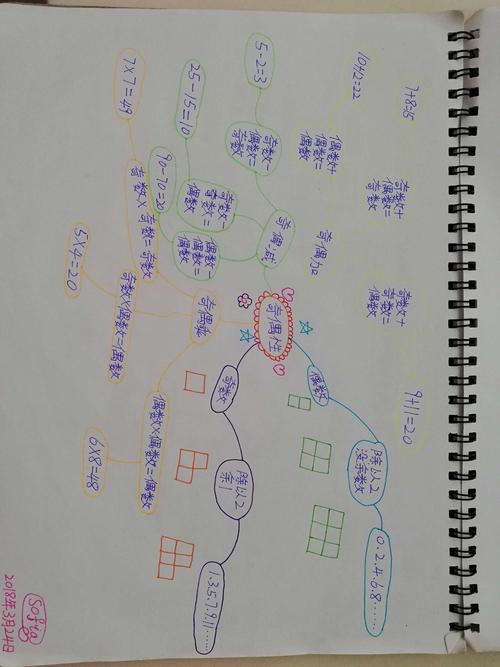 7+8=15
奇数+
偶数=
奇数
奇数+
奇数=
偶数
9+11=20
10+12=22
偶数+
偶数=
偶数
奇偶加
5-2=3
奇数-
偶数=
奇数
奇偶减
25-15=10
奇数-
奇数=
偶数
90-70=20
偶数-
偶数=
偶数
奇偶性
偶数
除以2
没余数
0.2.4.6.8……
奇数
除以2
余1
1.3.5.7.9.11……
奇偶乘
7×7=49
奇数×奇数=奇数
5×4=20
奇数×偶数=偶数
6×8=48
偶数×偶数=偶数
Sofia
2018年3月24日